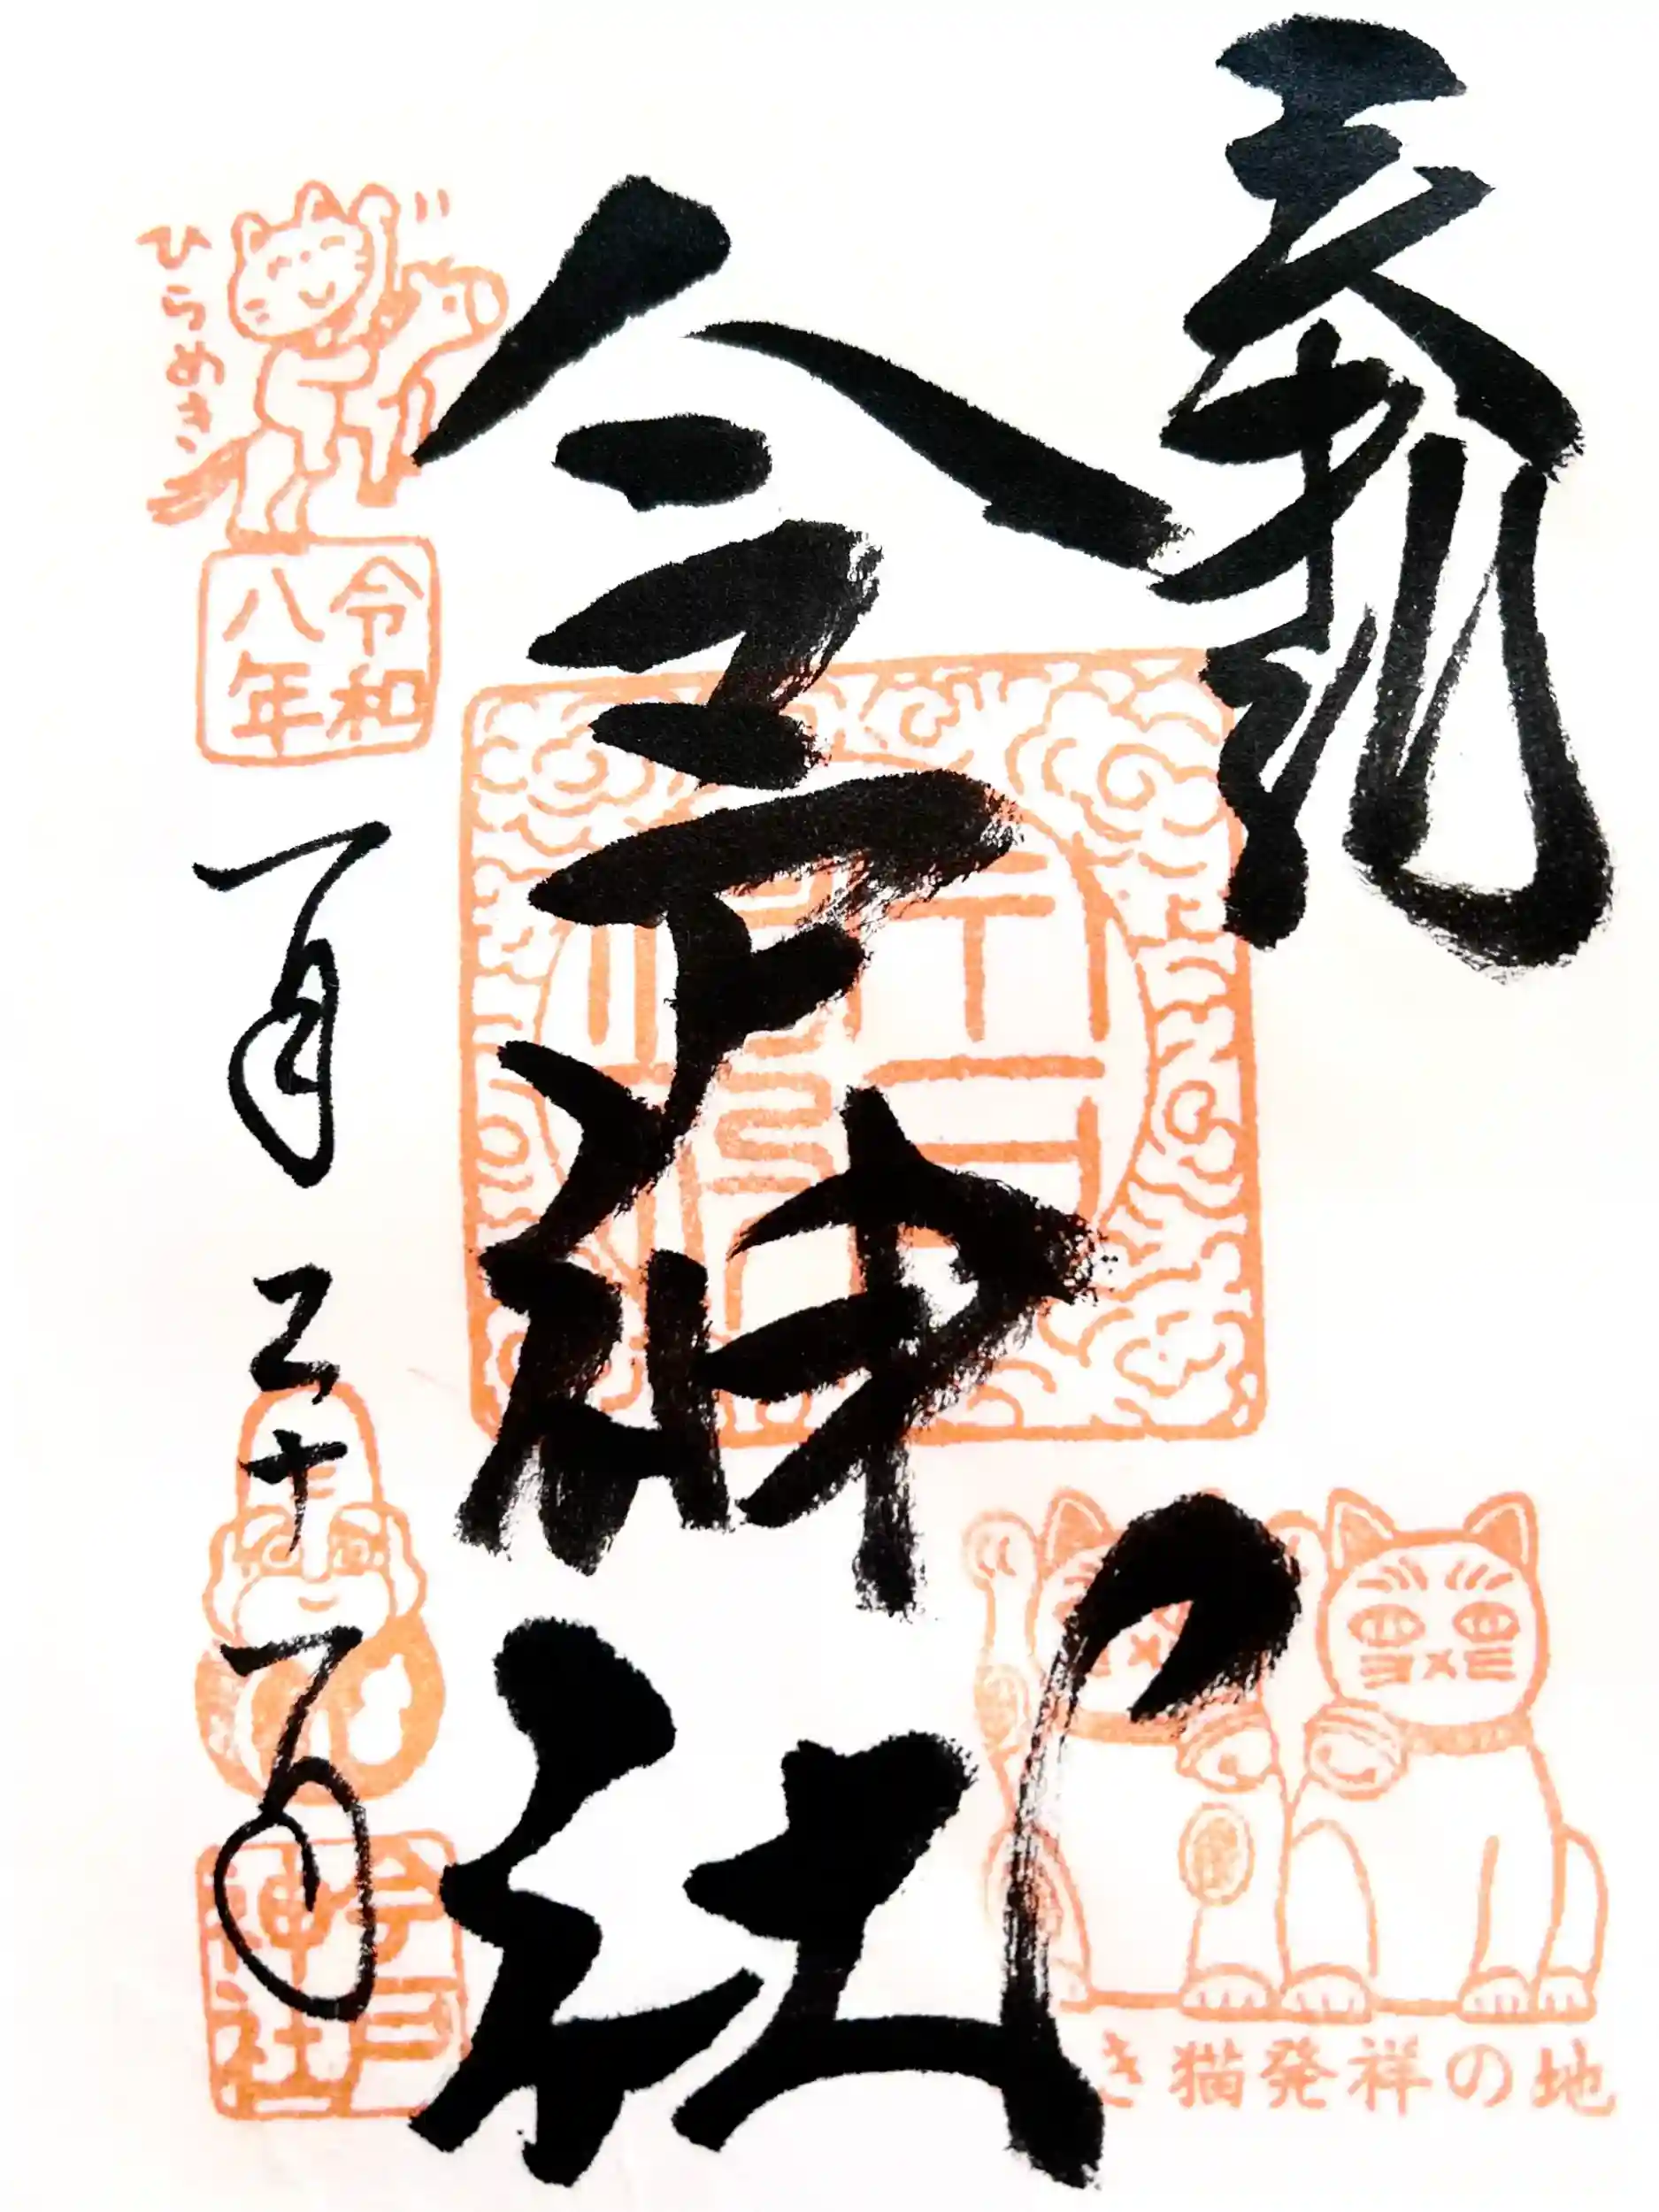 奉拝
き猫発祥の地
今戸神社
ひらめき
令和
八年
一月二十一日
今戸
神社